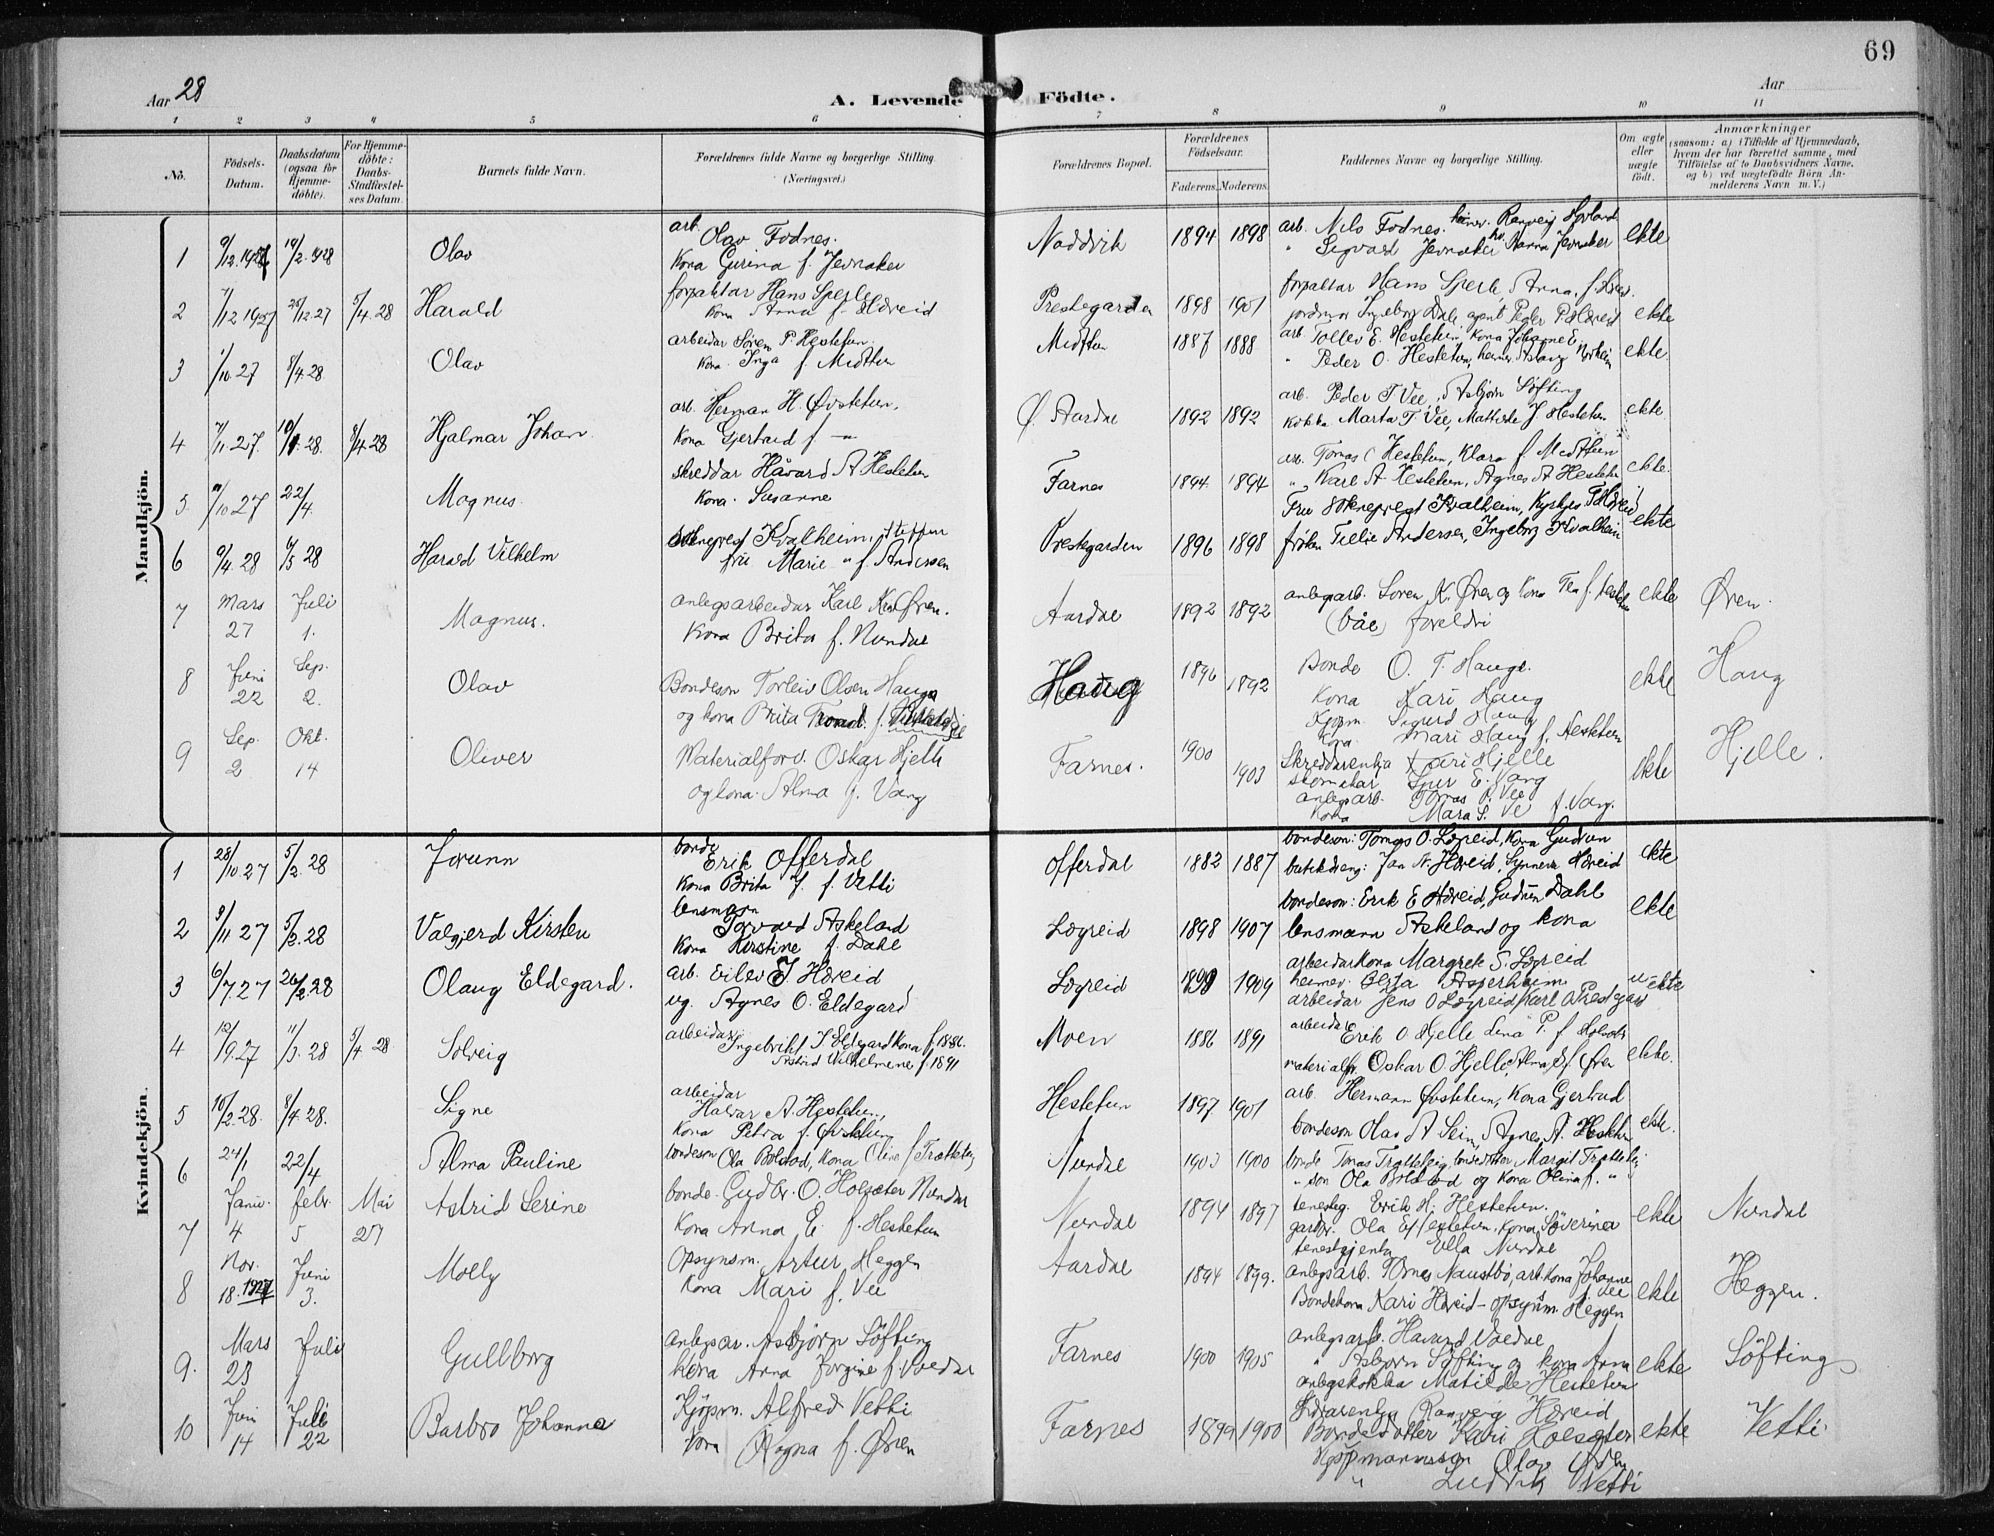 69
Aar 28
A. Levende Födte.
Aar
1 2 3 4 5 6 7 8 9 10 11
No.
Födsels-Datum.
Daabsdatum (ogsaa for Hjemmedöbte).
For Hjemmedöbte: Daabs-Stadfæstelses Datum.
Barnets fulde Navn.
Forældrenes fulde Navne og borgerlige Stilling. (Næringsvei.)
Forældrenes Bopæl.
Forældrenes Födselsaar.
Faderens. Moderens.
Faddernes Navne og borgerlige Stilling.
Om ægte eller uægte födt.
Anmærkninger
(saasom: a) i Tilfælde af Hjemmedaab, hvem der har forrettet samme, med Tilföielse af to Daabsvidners Navne, og b) ved uægtefödte Börn Anmelderens Navn m. V.)
Mandkjön.
1 9/12.1927 19/2.1928 Olav
arb. Olav Fodnes.
Kona Gurina f. Jevnaker
Naddvik 1894 1898
arb. Nils Fodnes. heimv. Ranveig Hovland
" Sigvard Jevnaker hv. Nanna Jevnaker
ekte
2 7/12 1927 25/12.27 5/4.28 Harald
forpaktar Hans Sperle
Kona Anna f. Hæreid
Prestegarden 1898 1901
forpaktar Hans Sperle, Anna f.
jordmor Ingeborg Dale, agent Peder P Hæreid
ekte
3 1/10.27 8/4.28 Olav
arbeidar Sören P. Hestetun.
Kona. Inga f. Midttun
Midttun 1887 1888
arb. Tollev E. Hestetun, Kona Johanne E.
" Peder O. Hestetun, heimv. Aslaug
ekte.
4 7/11.27. 10/1.28. 8/4.28 Hjalmar Johan.
arb. Herman H. Øvstetun.
Kona Gjertrud f. —"—
Ø. Aardal 1892 1892
arb. Peder T Vee, Asbjørn Söfting
kokka Marta T Vee, Mathilde J. Hestetun
ekte
5. 10.27 22/4. Magnus.
skreddar Håvard A Hestetun
Kona. Susanne
Farnes 1894. 1894
arb. Tomas Hestetun, Klara f. Midttun
" Karl A. Hestetun, Agnes A Hestetun
ekte.
6 9/4.28 6/5 28 Harald Vilhelm
sokneprest Kvalheim,
fru Marie " f. Andersen
Prestegarden 1896 1898
Fru Sokneprest Kvalheim,
fröken Andersen, Ingeborg Kvalheim
ekte
7 Mars 27 Juli 1. Magnus.
anlegsarbeidar Karl Øren.
Kona Brita f. Nundal
Aardal 1892 1892
anlegsarb. Soren K. Øren og kona Tea f.
(båe) foreldri
ekte Øren.
8 Juni 22 Sep. 2. Olav
Bondeson Torleiv Olsen Hauge
og kona Brita f.
Haug 1896 1892
Bonde O. T. Hauge.
Kona Kari Haug
Kjopm. Sigurd Haug
Kona Mari Haug f. Hestetun
ekte Haug
9 Sep. 2 Okt. 14 Oliver
Materialforv. Oskar Hjelle
og kona. Alma f. Vang
Farnes. 1900 1903
Skreddarenkja Kari Hjelle
skomakar E. Vang
anlegsarb. Tomas S. Vee
Kona Mara S. Ve f. Vang.
ekte Hjelle.
Kvindekjön.
1 28/10.27 5/2.28 Jorunn
bonde Erik Offerdal
Kona Brita J. f. Vetti
Offerdal 1882 1887
bondeson: Tomas O. Lægreid, Kona Gudrun
butikdreng: Jan N. Hæreid, Synneva Hæreid
ekte
2 9/11.27 5/2.28 Valgjerd Kirsten
lensmann Torvald Askeland
Kona Kirstine f. Dahl
Lægreid 1898 1907
bondeson: Erik E Hæreid, Gudrun Dahl
lensmann Askeland og kona
ekte
3 6/7.27 26/2.28 Olaug Eldegard.
arb. Eilev J. Hæreid
ug. Agnes O. Eldegard
Lægreid 1909
arbeidarkona Margrete S. Lægreid
heimev. Berta Asperheim.
arbeidar Jens O Lægreid, Karl O Prestegard
u-ekte
4 12/9.27 11/3.28 5/4 28 Solveig
arbeidar Ingebrikt J. Eldegard kona f. 1886.
Astrid Vilhelmine f. 1891
Moen 1886 1891
arbeidar Erik O Hjelle Lina P. f
materialfv. Oskar O. Hjelle, Alma f. Øren
ekte.
5 10/2.28. 8/4.28. Signe
arbeidar
Halvar A. Hestetun,
Kona Petra f. Øvstetun
Hestetun 1897 1901
arb. Hermann Øvstetun, Kona Gjertrud
bondeson Olav A Seim, Agnes A. Hestetun
ekte.
6 24/1 22/4 Alma Pauline
bondeson Ola Bolstad, Kona Olina f. Trætteteig
Nundal 1903 1900
bonde Tomas Trætteteig, bondedotter Margit Trætteteig
" son Ola Bolstad og Kona Olina f. " "
7 Janu. 4 Febr. 5 Mai 27 Astrid Serine
bonde. Gudbr. O. Holsæter Nundal
Kona Anna E. f. Hestetun
Nundal 1894 1897
tenesteg. Erik H. Hestetun.
gardbr. Ola E. Hestetun, Kona Säverina
tenestgjenta Ella Nundal
ekte Nundal
8 Nov. 18. 1927 Juni 3. Molly
Opsynsm. Artur Heggen
Kona Mari f. Vee
Aardal 1894 1899.
anlegsarb. Tomas Naustbö, arb. kona Johanne f. Vee
Bondekona Kari Hæreid – opsynsm. Heggen
ekte Heggen.
9. Mars 23 Juli 1 Gullborg
anlegsar. Asbjørn Söfting
Kona Anna Jorgine f. Svedal
Farnes 1900 1905
anlegsarb. Havard Vaedal
" Asbjorn Söfting og kona Anna
anlegskokka Matilde Hestetun
ekte Söfting
10 Juni 14 Juli 22 Barbro Johanna
Kjöpm. Alfred Vetti
Kona Ragna f. Øren
Farnes 1899 1900
Ranveig Hæreid
Bondedotter Kari Holsæter
Kjöpmannsson Olav Øren
" Ludvik Vetti
ekte Vetti